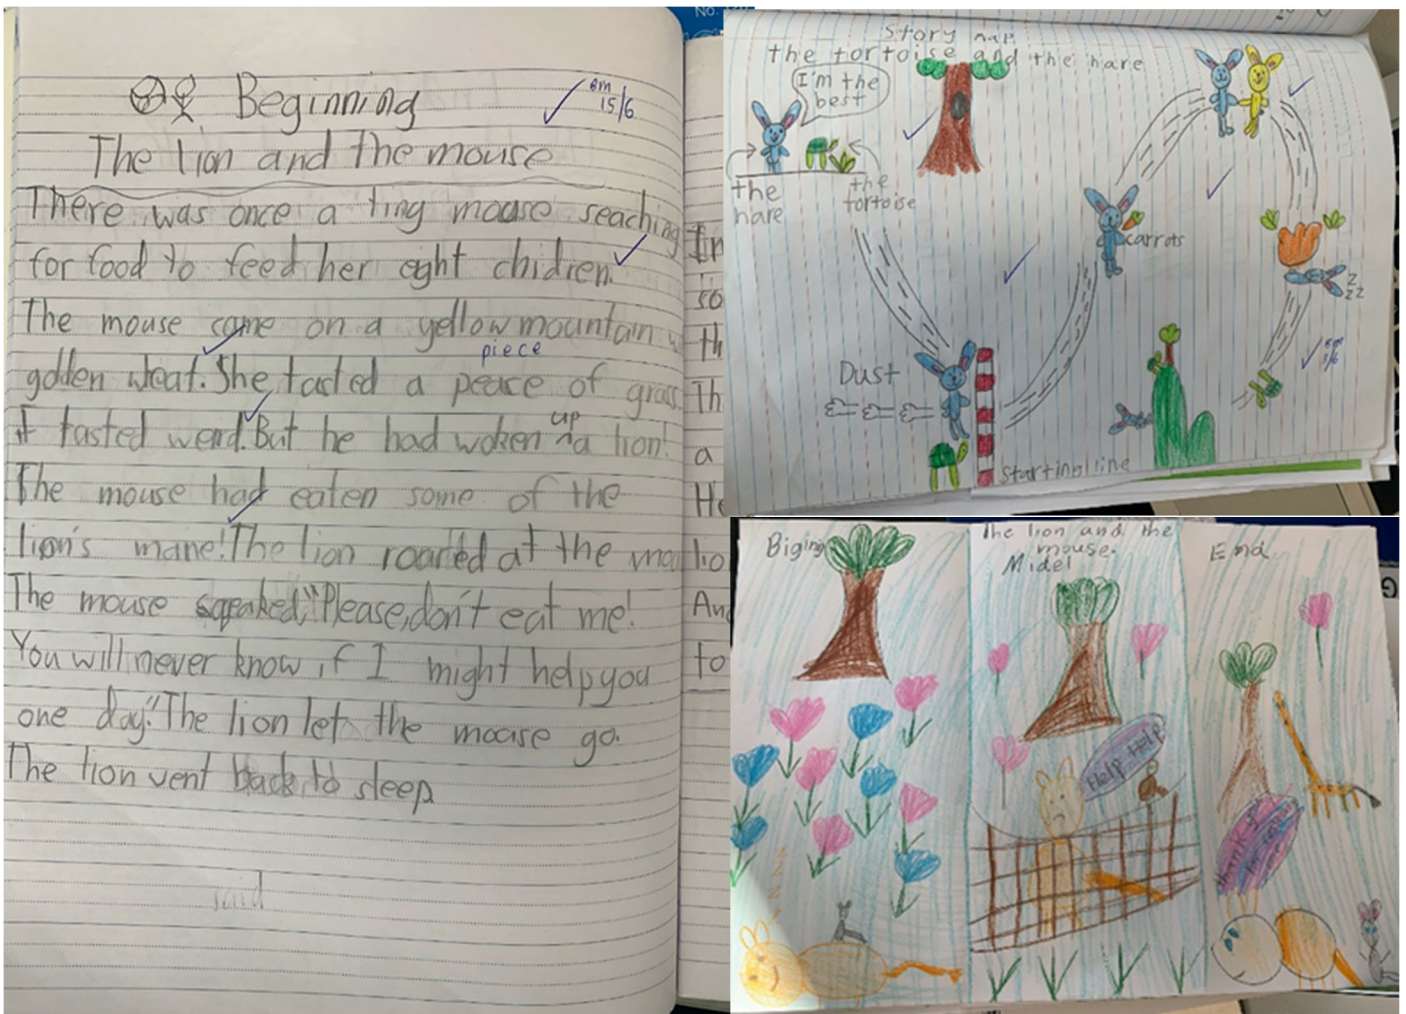 No. 120
Beginning
8m
15/6
The lion and the mouse
There was once a ting mouse seaching
for food to feed her eght chidren.
The mouse came on a yellow mountain
piece
golden wheat. She tasted a peace of grass
it tasted werd. But he had woken up a lion!
The mouse had eaten some of the
lion's mane! The lion roarted at the
The mouse sqeaked, "Please, don't eat me!
You will never know if I might help you
one day." The lion let the mouse go.
The lion went back to sleep
said
so
th
Th
a
He
lio
An
to
Story map
the tortoise and the hare
I'm the
best
the
hare
the
tortoise
carrots
Z
ZZ
Dust
Starting line
The lion and the
mouse.
Biging
Midel
End
Help Help